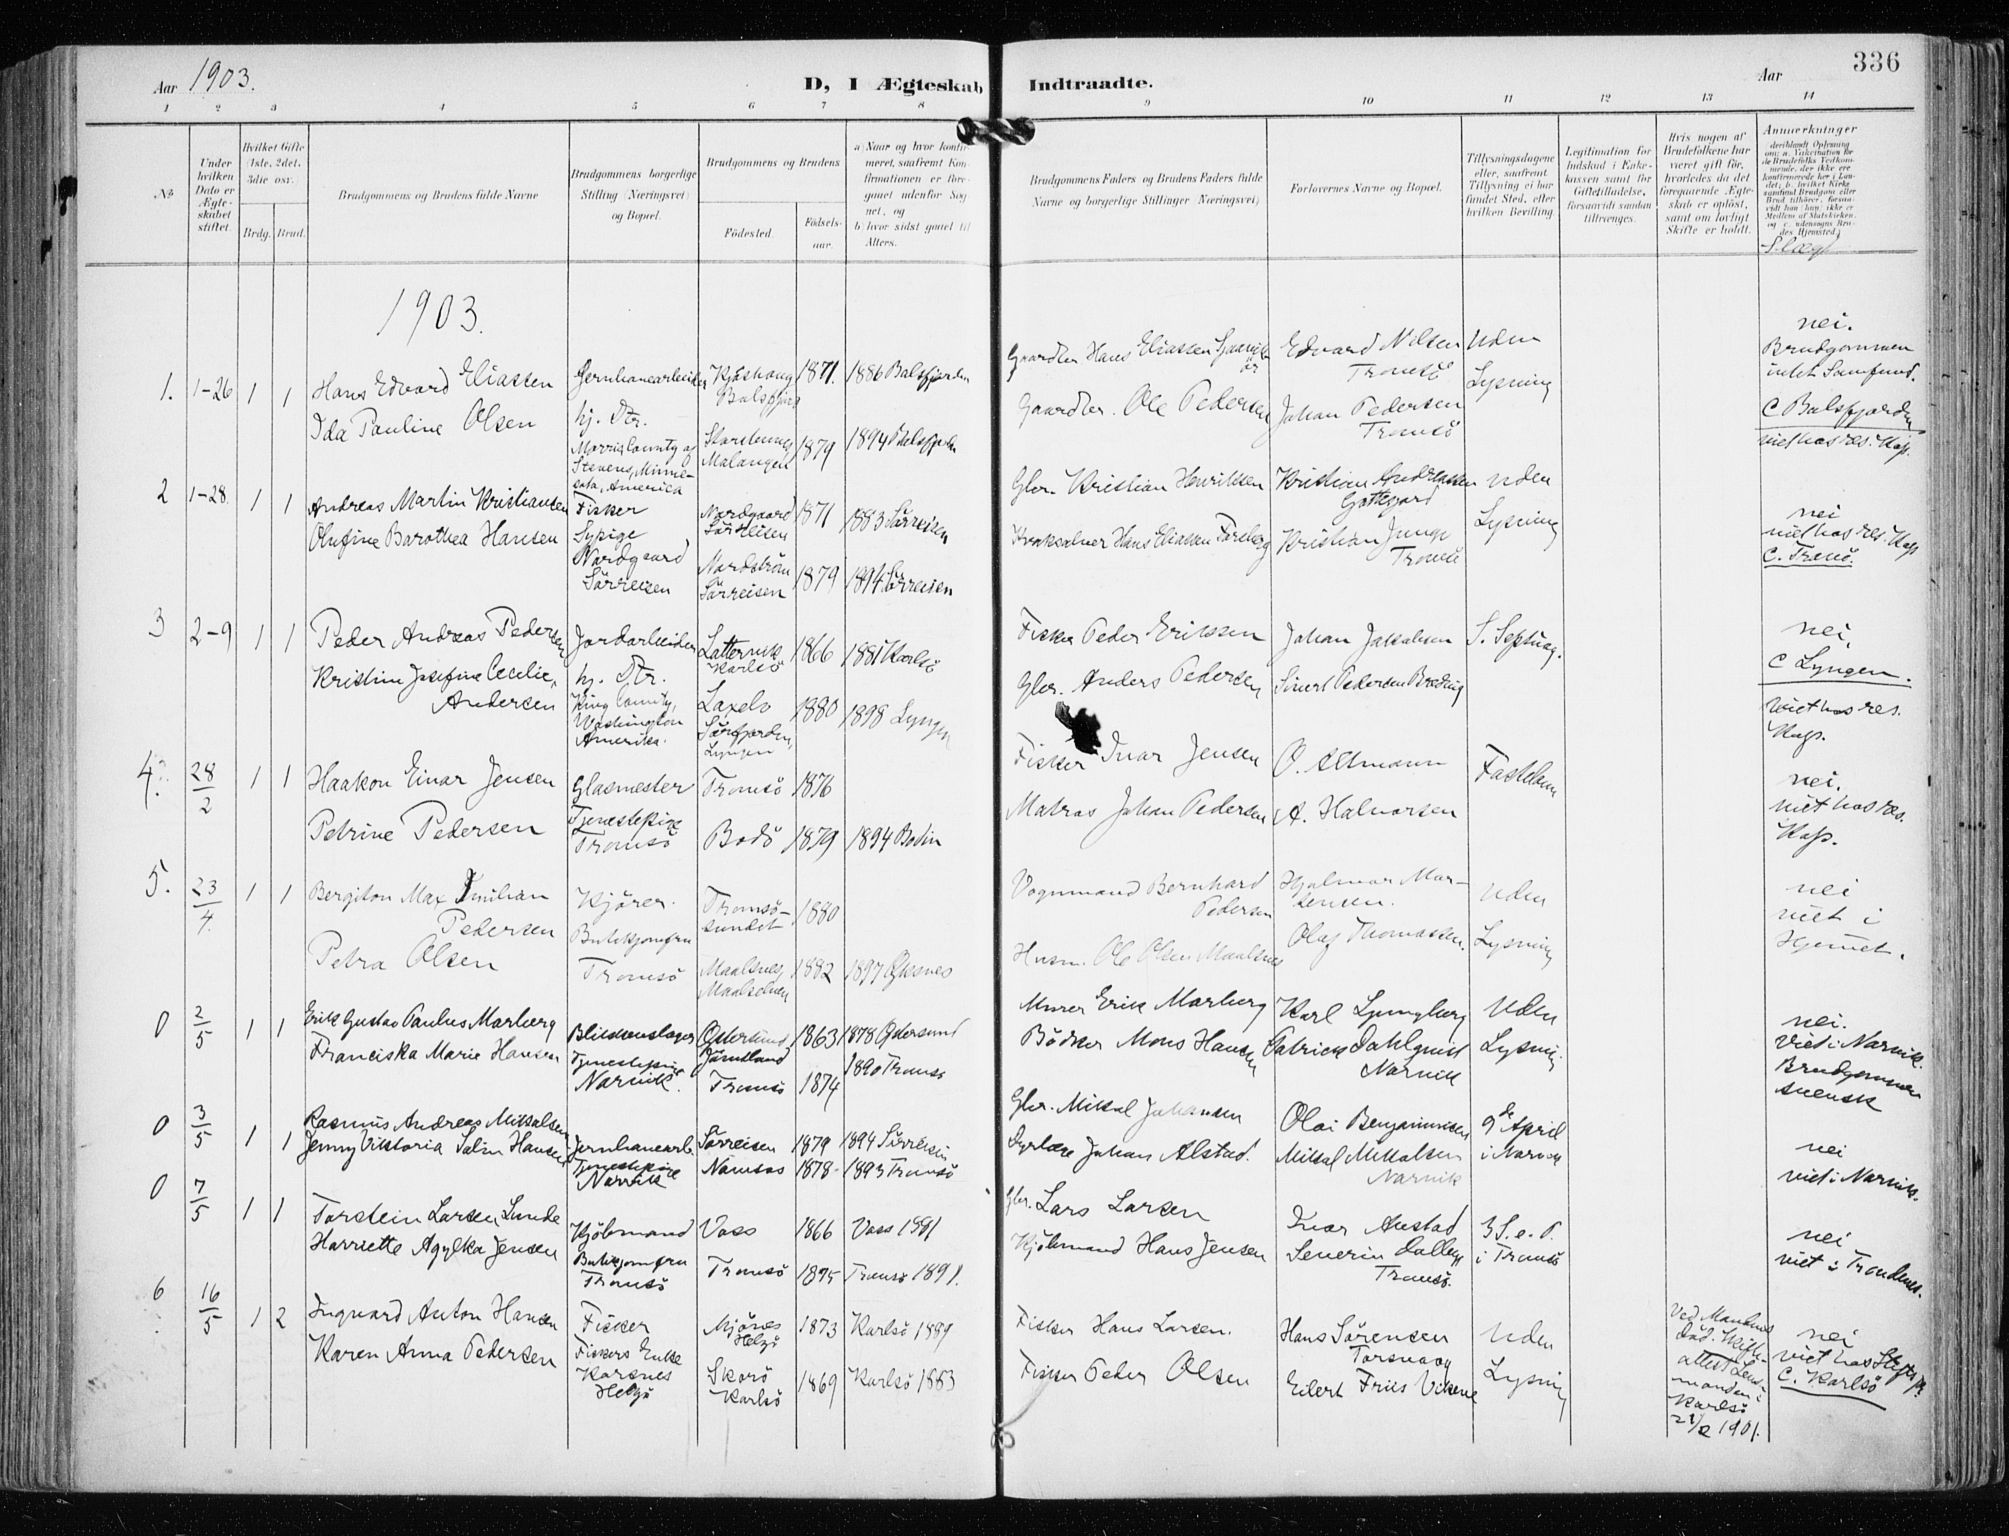 336
Aar 1903.
D, I Ægteskab Indtraadte.
Aar
1 2 3 4 5 6 7 8 9 10 11 12 13 14
No
Under hvilken Dato er Ægteskabet stiftet.
Hvilket Gifte (1ste, 2det, 3die osv.)
Brdg. Brud.
Brudgommens og Brudens fulde Navne
Brudgommens borgerlige Stilling (Næringsvei) og Bopæl.
Brudgommens og Brudens
Fødested.
Fødselsaar.
a) Naar og hvor konfirmeret, saafremt Konfirmationen er foregaaet udenfor Sognet, og
b) hvor sidst gaaet til Alters.
Brudgommens Faders og Brudens Faders fulde Navne og borgerlige Stillinger Næringsvei)
Forlovernes Navne og Bopæl.
Tillysningsdagene eller, saafremt Tillysning ei har fundet Sted, efter hvilken Bevilling.
Legitimation for Indskud i Enkekassen samt for Giftetilladelse, forsaavidt saadan tiltrænges.
Hvis nogen af Brudefolkene har været gift før, hvorledes da det foregaaende Ægteskab er opløst, samt om lovligt Skifte er holdt.
Anmærkninger
1903.
1. 1-26 1 1
Hans Edvard Eliassen
Ida Pauline Olsen
Jernbanearbeider
hj. Dtr.
Morris County og
Stevens, Minne-
sota, America
Balsfjord
Malangen
1871. 1886 Balsfjorden
1879 1894 Balsfjorden
Gaardbr. Hans Eliassen
Gaardbr. Ole Pedersen
Edvard Nilsen
Tromsö
Johan Pedersen
Tromsö
Uden
Lysning
nei.
Brudgommen
intet Samfund.
C Balsfjorden
viet hos res. Kap.
2 1-28 1 1
Andreas Martin Kristiansen
Olufine Barothea Hansen
Fisker
Sypige
Nordgaard
Sörreisen
Nordgaard
Sörreisen
Nordström
Sörreisen
1871 1883 Sörreisen
1879 1894 Sörreisen
Gbr. Kristian Henriksen
Kvaksalver Hans Eliassen Forsberg
Kristian Andreassen
Kristian Junge
Tromsö
uden
Lysning
nei
viet hos res. Kap
C. Tranö.
3 2-9 1 1
Peder Andreas Pedersen
Kristine Josefine Cecilie
Andersen
Jordarbeider
hj. Dtr.
King County,
Washington
Amerika.
Lattervik
Karlsö
Laxelv
Sörfjorden,
Lyngen
1866 1881 Karlsö
1880 1898 Lyngen
Fisker Peder Erikssen
Gbr. Anders Pedersen
Johan Jakobsen
Sivert Pedersen
S. Septuag.
nei,
C Lyngen.
Viet hos res.
Kap.
4. 28/2 1 1
Haakon Einar Jensen
Petrine Pedersen
Glasmester
Tjenestepige
Tromsö
Tromsö 1876
Bodö 1879 1894 Bodin
Fisker Ivar Jensen
Matros Johan Pedersen
O. Altmann
A. Halvorsen
Fastelavn
nei.
viet hos res.
Kap.
5. 23/4. 1 1
Bergiton Max Emilian
Pedersen
Petra Olsen
Kjörer.
Butikjomfru
Tromsö
Tromsö-
sundet
1880
Maalsnes
Maalselven
1882 1897
Vognmand Bernhard
Pedersen
Husm. Ole Olsen Maalsnes
Hjalmar Mar-
Olaf Thomassen.
Uden
Lysning
nei
viet i
Hjemmet.
0 2/5 1 1
Erik Gustav Paulus Marberg
Franciska Marie Hansen
Blikkenslager
Tjenestepige
Narvik.
Östersund,
Jämtland
Tromsö
1863 1878 Östersund
1874 1890 Tromsö
Murer Erik Marberg
Bödker Mons Hansen
Karl Ljungberg
Patrick Dahlqvist
Narvik
Uden
Lysning
nei.
Viet i Narvik.
Brudgommen
svensk
0 3/5 1 1
Rasmus Andreas Mikkalsen
Jenny Viktoria Hansen
Jernbanearb.
Tjenestepige
Narvik
Sörreisen 1879 1894 Sörreisen
Namsos 1878 1893 Tromsö
Gbr. Mikal Johansen
Dyrlæge Johan Alstad.
Olai Benjaminsen
Mikkal Mikkalsen
Narvik
9de April
i Narvik
nei
viet i Narvik.
0 7/5 1 1
Torstein Larsen Lunde
Harriette Agylka Jensen
Kjöbmand
Butikjomfru
Tromsö
Voss 1866 Voss 1881
Tromsö 1875 Tromsö 1891.
Gbr. Lars Larsen
Kjöbmand Hans Jensen
Ivar Austad
Severin
Tromsö.
3 S. e. P.
i Tromsö
nei
viet i Trondenes.
6 16/5 1 2
Ingvard Anton Hansen
Karen Anna Pedersen
Fisker
Fiskers Enke
Karsnes
Helgö
Mjönes
Helgö
Skorö
Karlsö
1873 Karlsö 1889
1869 Karlsö 1883
Fisker Hans Larsen.
Fisker Peder Olsen
Hans Sörensen
Torsvaag
Eilert Friis
Uden
Lysning
Ved Mandens
död. Skifte-
attest Lens-
manden i
Karlsö
1901.
nei
C. Karlsö